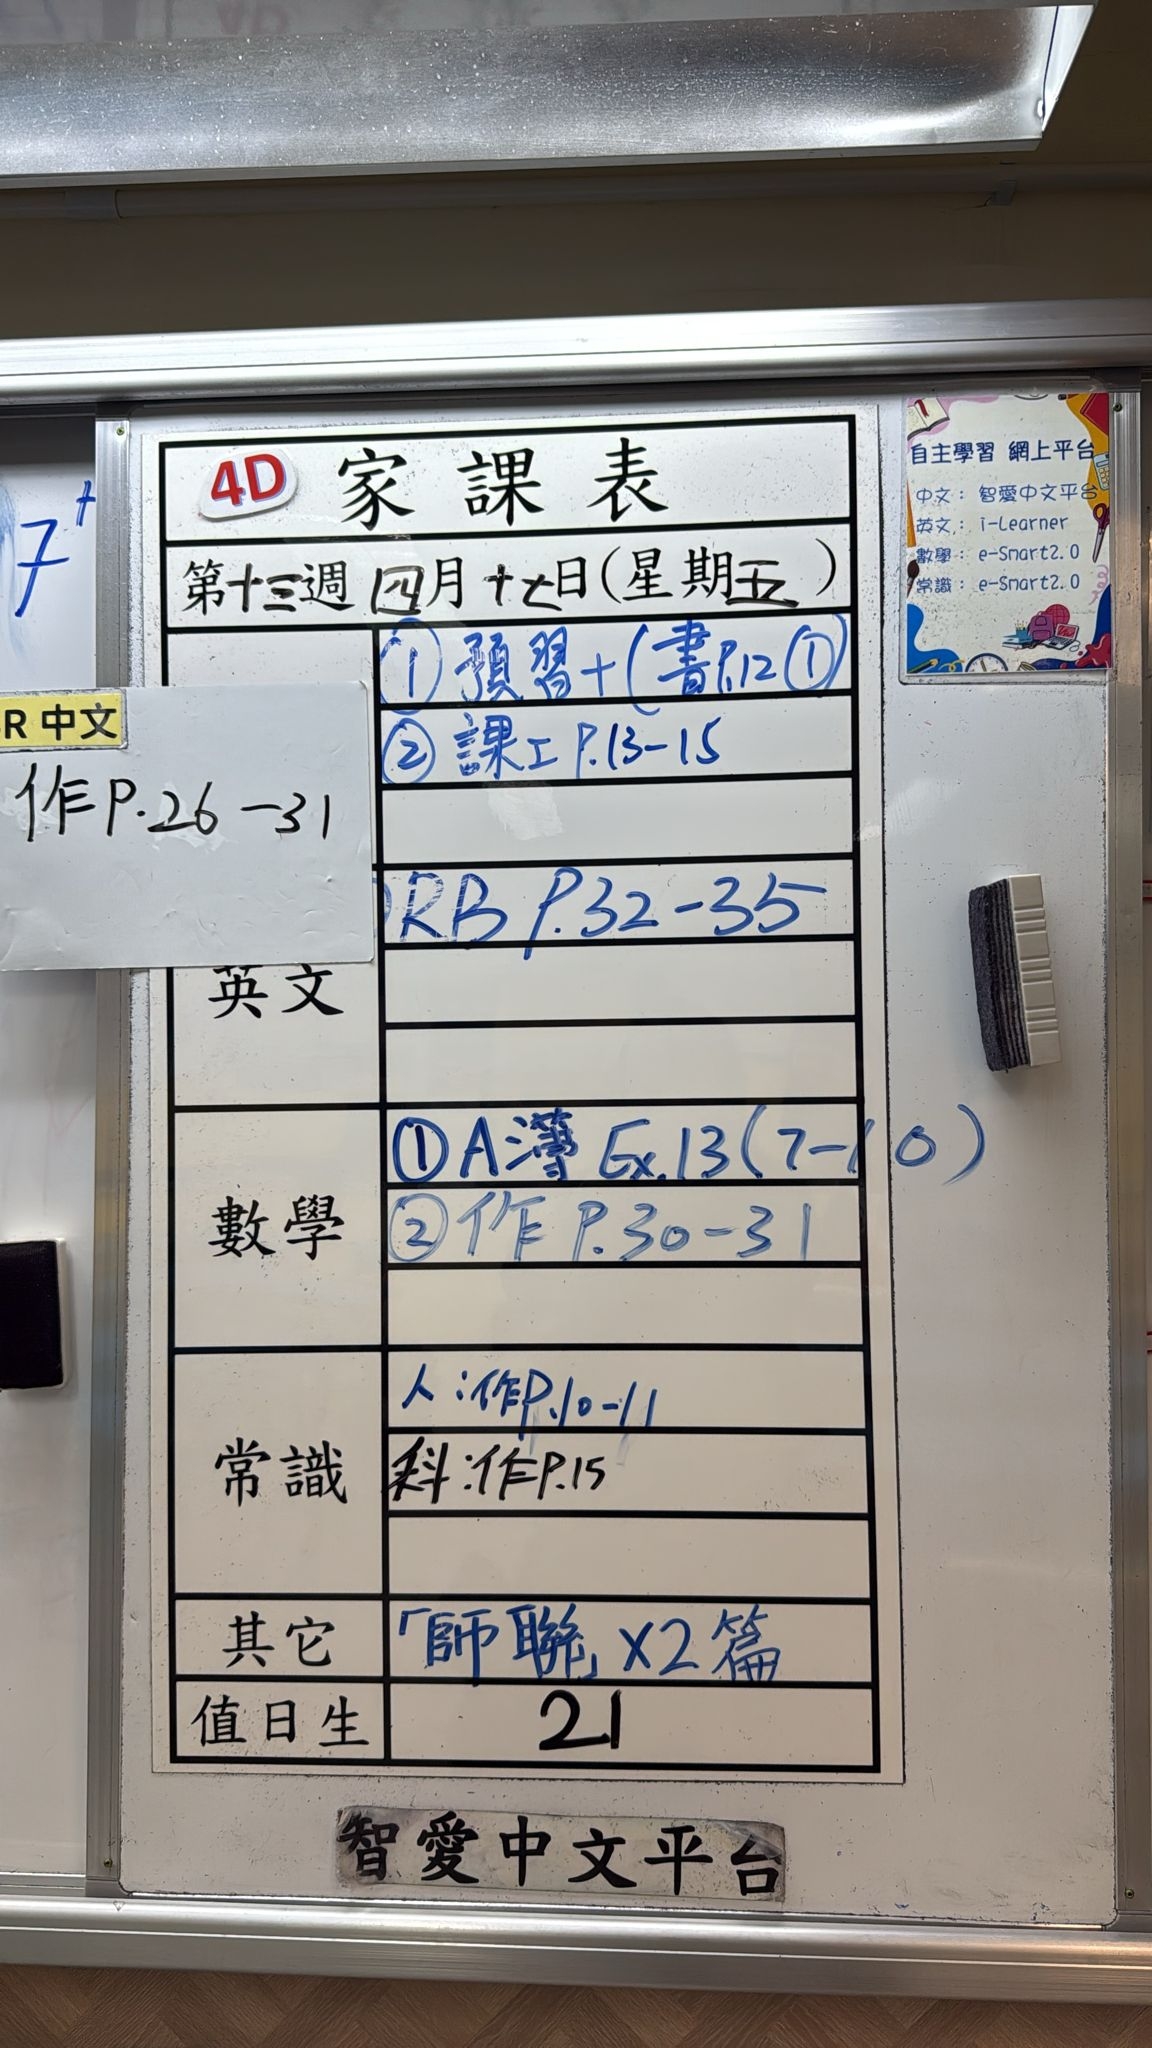 4D 家課表
第十三週 四月十七日(星期五)
① 預習+(書P.12①)
② 課工 P.13-15
R 中文
作P.26-31
英文
RB P.32-35
數學
① A簿 Ex.13(7-10)
② 作 P.30-31
常識
人:作P.10-11
科:作P.15
其它
「師聯」x2篇
值日生
21
智愛中文平台
自主學習 網上平台
中文: 智愛中文平台
英文: i-Learner
數學: e-Smart2.0
常識: e-Smart2.0
7+